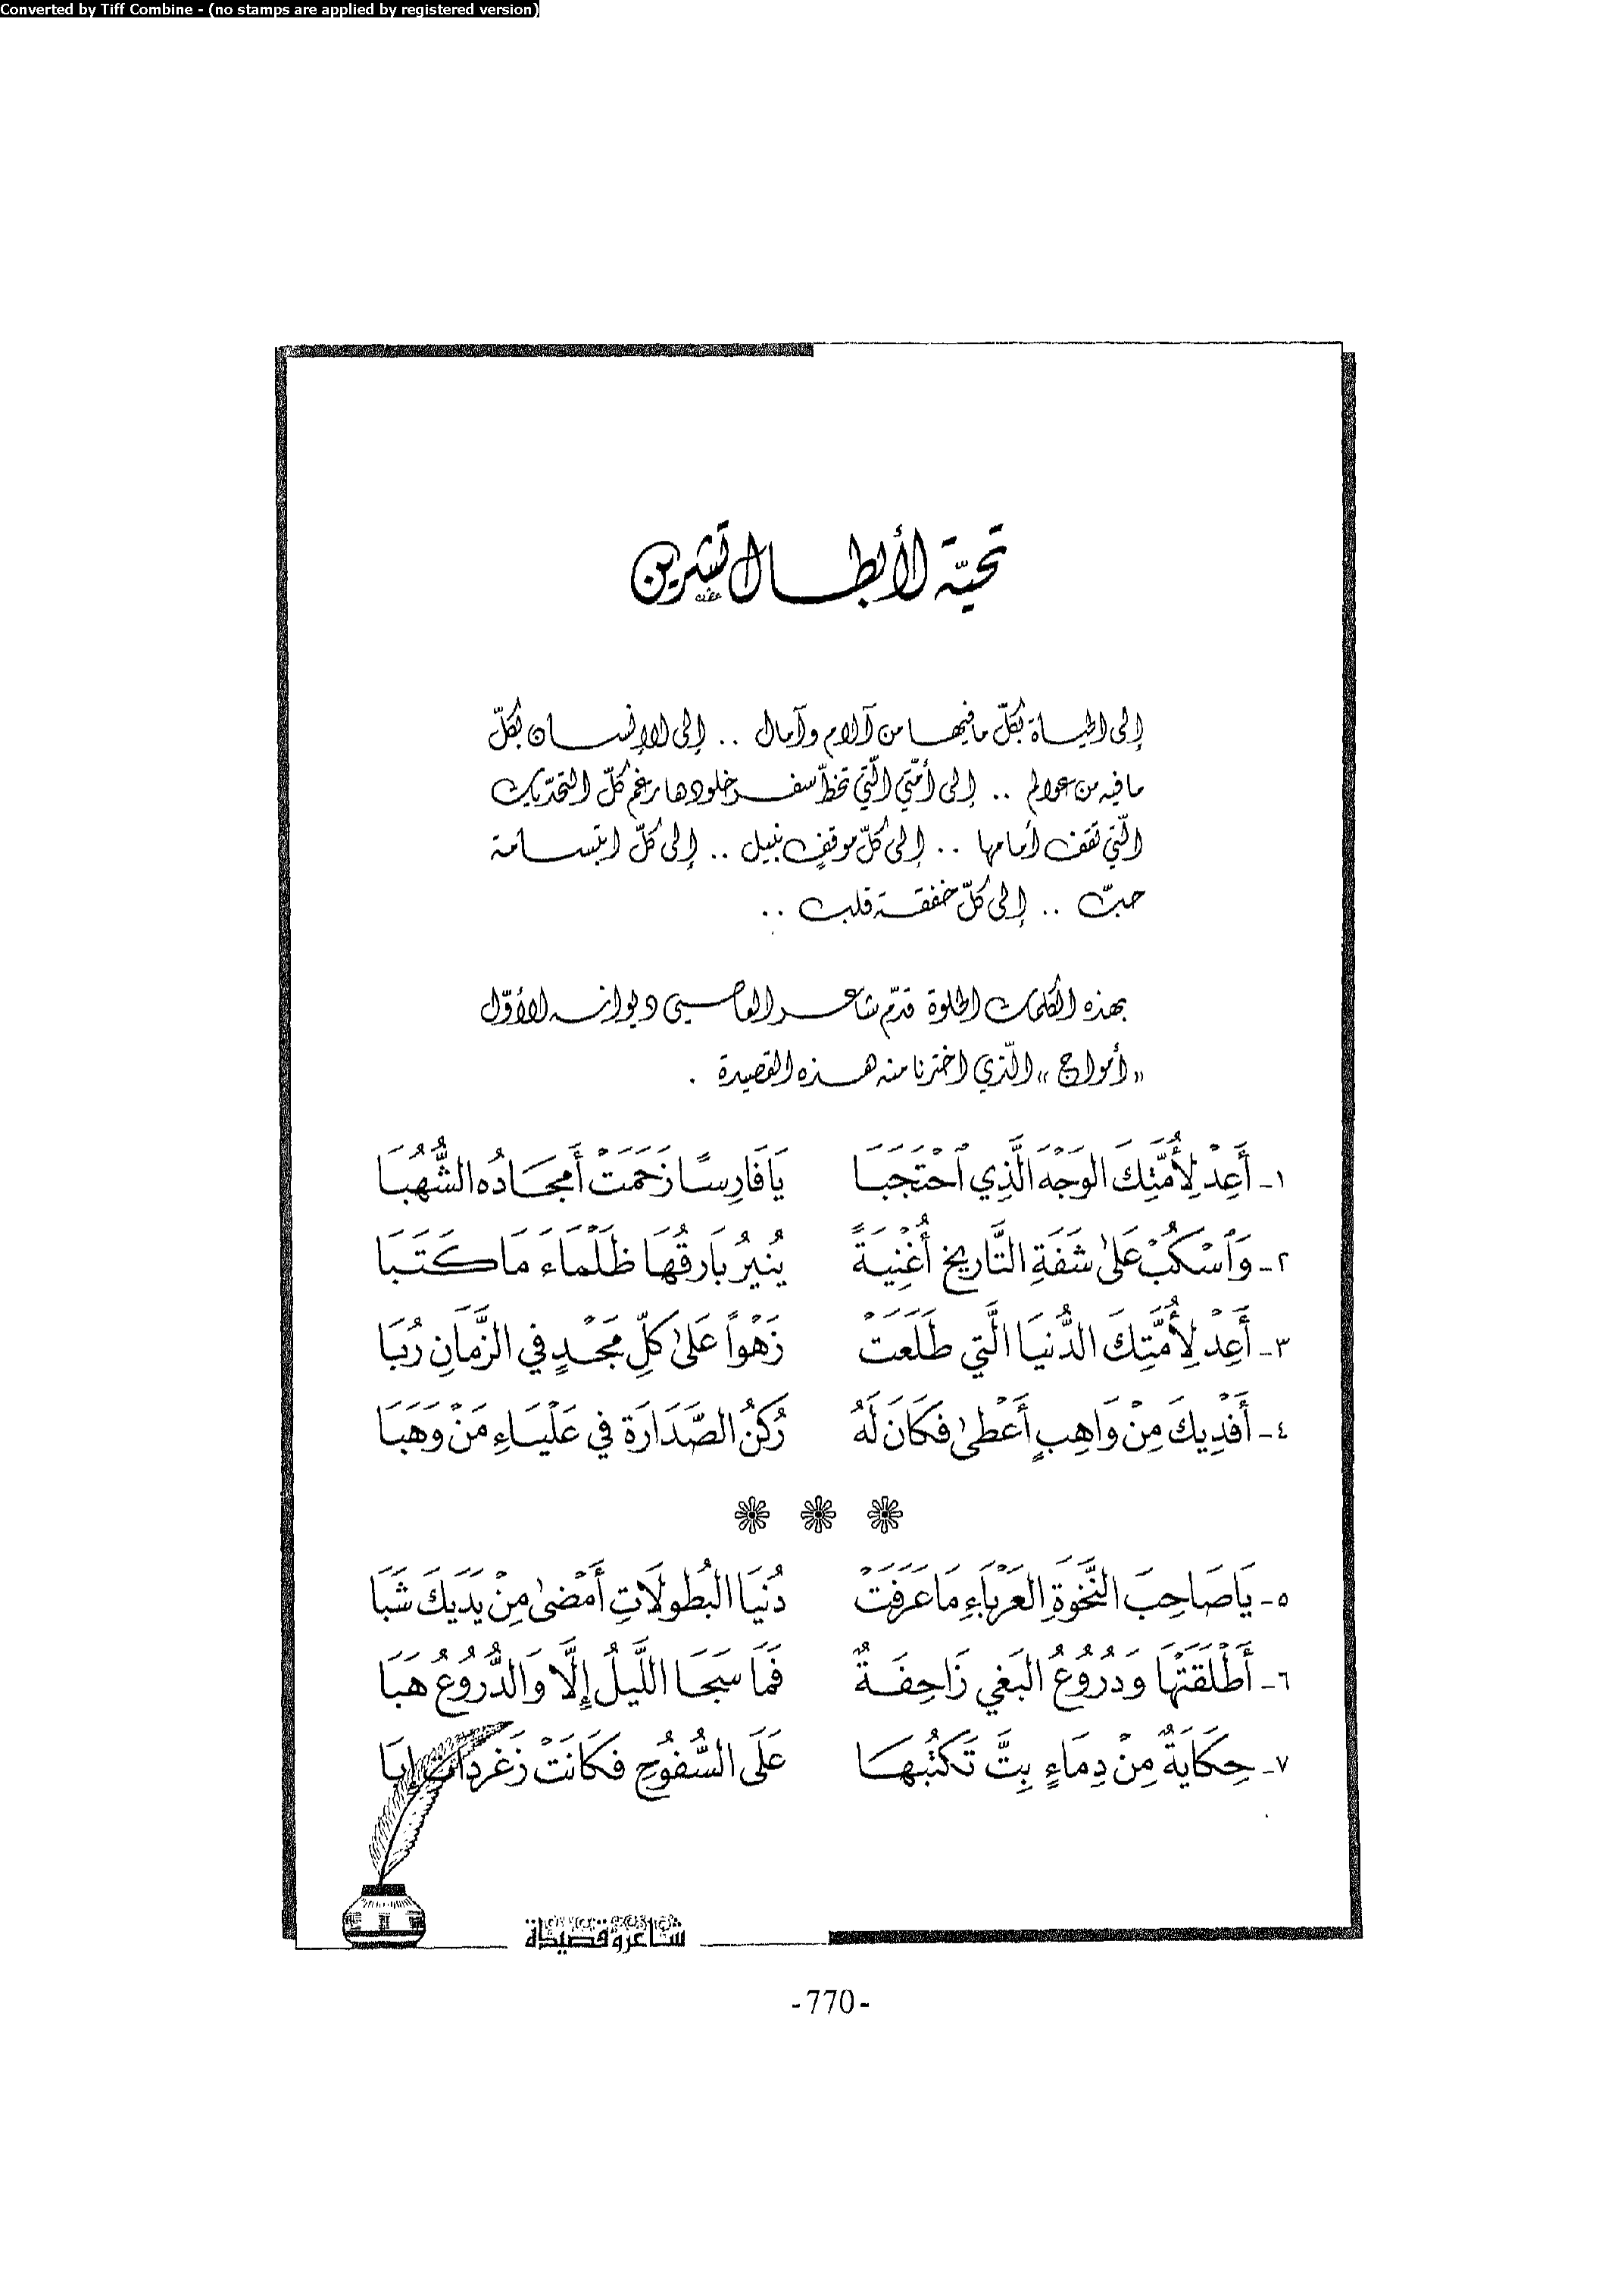 Converted by Tiff Combine - (no stamps are applied by registered version)
تحيّة لأبطال تشرين
إلى الحياة بكلّ ما فيها من آلام وآمال .. إلى الإنسان بكلّ
ما فيه من عوالم .. إلى أمّتي الّتي تخطّ سفر خلودها رغم كلّ التحدّيات
الّتي تقف أمامها .. إلى كلّ موقفٍ نبيل .. إلى كلّ ابتسامة
حبّ .. إلى كلّ خفقة قلب ..
بهذه الكلمات الحلوة قدّم شاعر العاصي ديوانه الأوّل
«أمواج» الّذي اخترنا منه هذه القصيدة .
١- أَعِدْ لِأُمَّتِكَ الوَجْهَ الَّذِي ٱحْتَجَبَا يَا فَارِسًا زَحَمَتْ أَمجَادُه الشُّهُبَا
٢- وَٱسْكُبْ عَلىٰ شَفَةِ التَّاريخِ أُغْنِيَةً يُنيرُ بَارِقُهَا ظَلْمَاءَ مَا كَتَبَا
٣- أَعِدْ لِأُمَّتِكَ الدُّنيَا الَّتِي طَلَعَتْ زَهْواً عَلىٰ كلِّ مَجْدٍ في الزَّمَانِ رُبَا
٤- أَفْدِيكَ مِنْ وَاهِبٍ أَعْطىٰ فكَانَ لَهُ رُكنُ الصَّدَارَة في عَلْيَاءِ مَنْ وَهَبَا
٥- يَا صَاحِبَ النَّخوَةِ العَرْبَاءِ مَا عَرَفَتْ دُنيَا البُطولَاتِ أَمْضىٰ مِنْ يَدَيكَ شَبَا
٦- أَطْلَقْتَهَا وَدُرُوعُ البَغي زَاحِفَةٌ فَمَا سَجَا اللَّيلُ إِلَّا وَالدُّرُوعُ هَبَا
٧- حِكَايَةٌ مِنْ دِمَاءٍ بِتَّ تَكتُبُهَا عَلَى السُّفُوحِ فكَانَتْ زَغرَدَاتِ إِبَا
شاعر وقصيدة
-770-